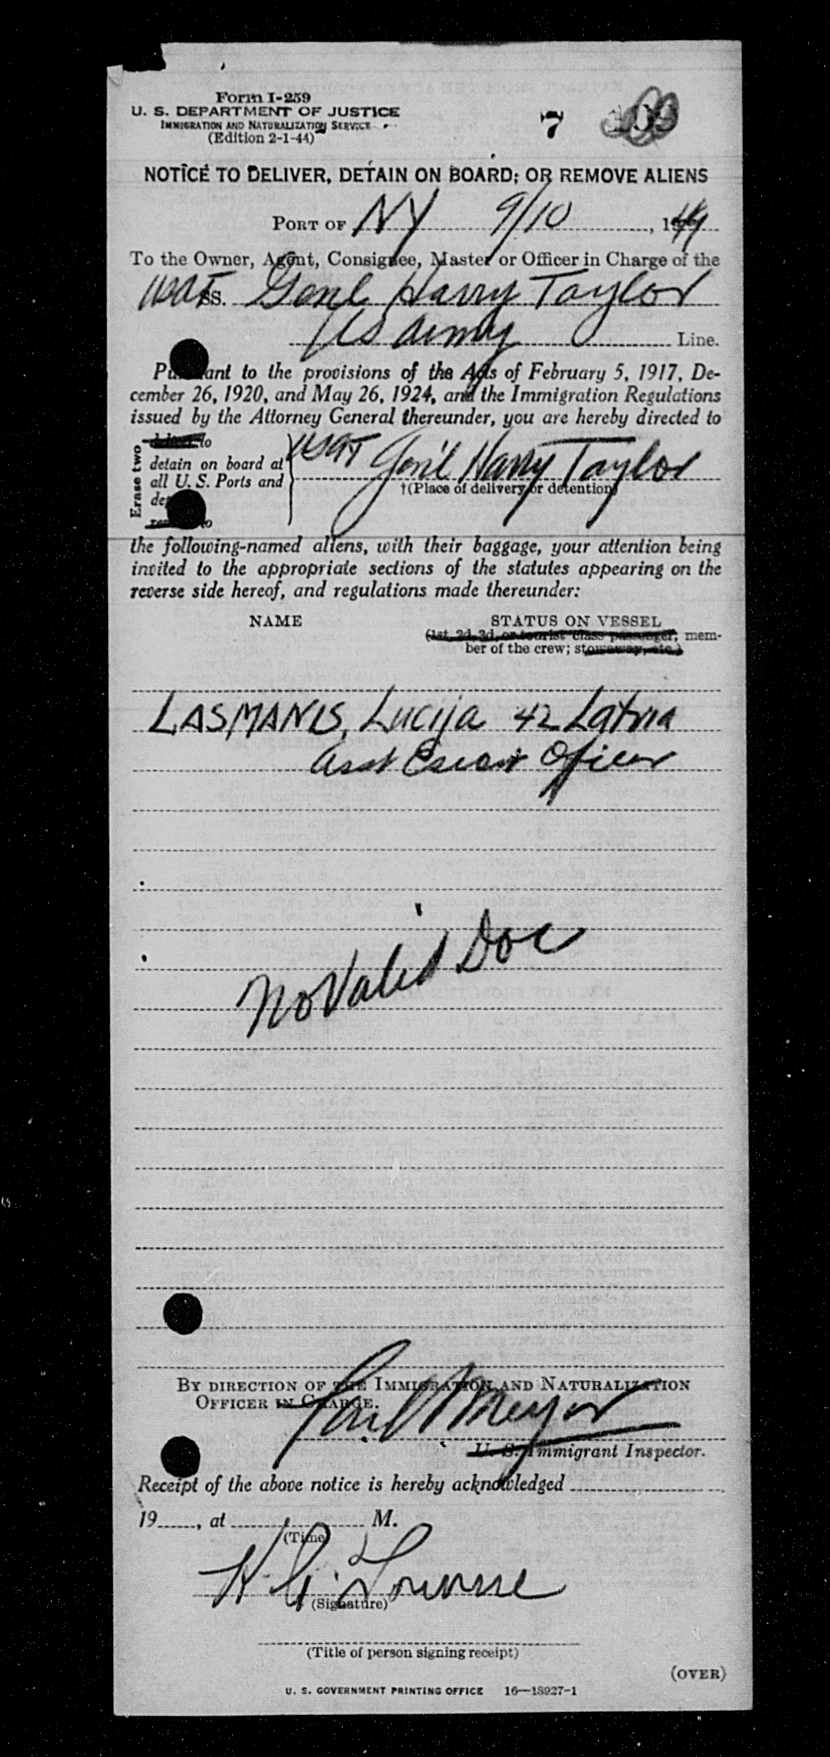 Form I-259
U. S. DEPARTMENT OF JUSTICE
IMMIGRATION AND NATURALIZATION SERVICE
(Edition 2-1-44)
7
NOTICE TO DELIVER, DETAIN ON BOARD, OR REMOVE ALIENS
PORT OF NY 9/10, 19
To the Owner, Agent, Consignee, Master or Officer in Charge of the
USAT SS. Genl Harry Taylor
US Army Line.
Pursuant to the provisions of the Acts of February 5, 1917, De-
cember 26, 1920, and May 26, 1924, and the Immigration Regulations
issued by the Attorney General thereunder, you are hereby directed to
Erase two
deliver to
detain on board at
all U. S. Ports and
USAT Gen'l Harry Taylor
†(Place of delivery or detention)
remove to
the following-named aliens, with their baggage, your attention being
invited to the appropriate sections of the statutes appearing on the
reverse side hereof, and regulations made thereunder:
NAME STATUS ON VESSEL
(1st, 2d, 3d, or tourist class passenger; mem-
ber of the crew; stowaway, etc.)
LASMANIS, Lucija 42 Latvia
Asst Escort Officer
No Valid Doc
BY DIRECTION OF THE IMMIGRATION AND NATURALIZATION
OFFICER IN CHARGE.
U. S. Immigrant Inspector.
Receipt of the above notice is hereby acknowledged
19, at M.
(Time)
(Signature)
(Title of person signing receipt)
(OVER)
U. S. GOVERNMENT PRINTING OFFICE 16—18927-1